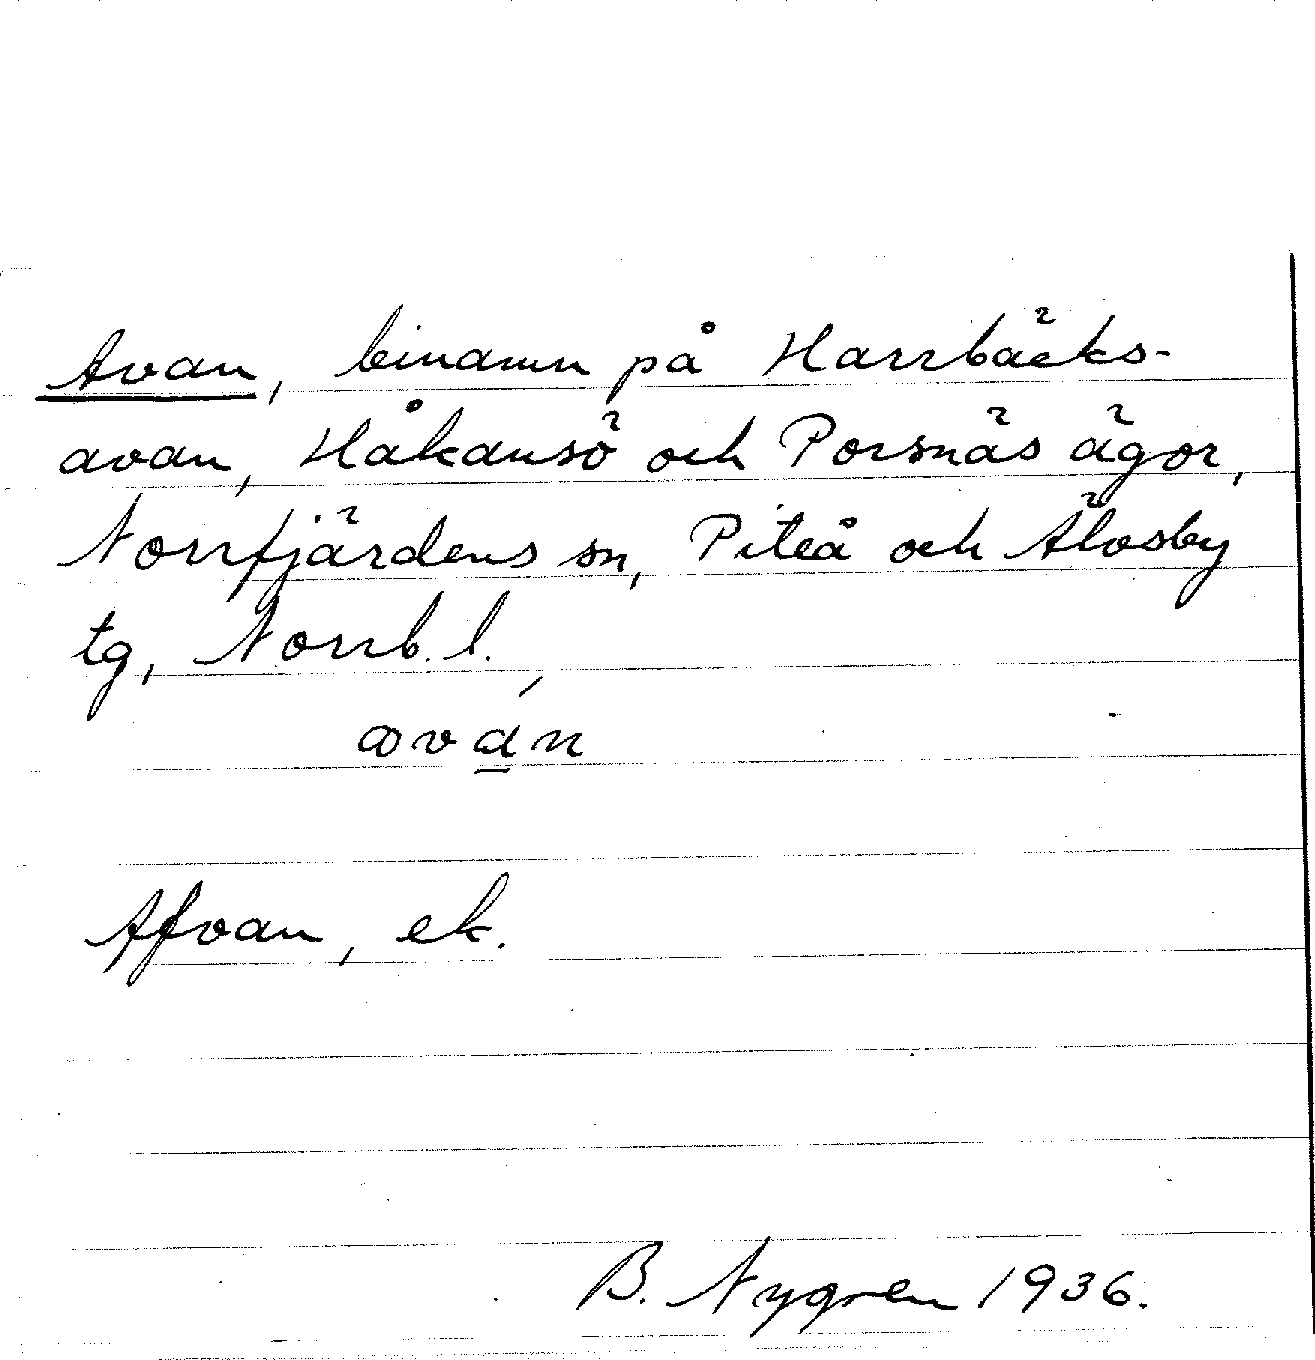 Avan, binamn på Harrbäcks-
avan, Håkansö och Porsnäs ägor,
Norrfjärdens sn, Piteå och Älvsby
tg, Norrb. l.
avá̱n
Afvan, ek.
B. Nygren 1936.